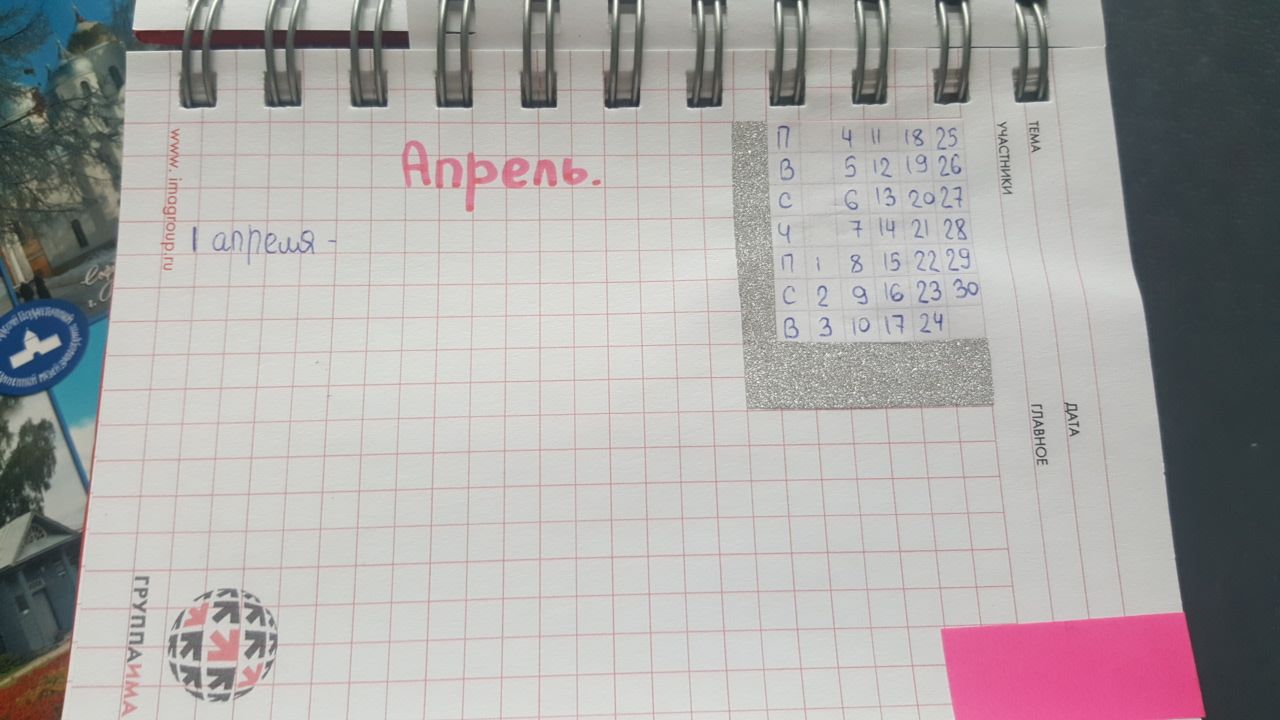 Апрель.
1 апреля -
П 4 11 18 25
В 5 12 19 26
С 6 13 20 27
Ч 7 14 21 28
П 1 8 15 22 29
С 2 9 16 23 30
В 3 10 17 24
ТЕМА
УЧАСТНИКИ
ДАТА
ГЛАВНОЕ
www.imagroup.ru
ГРУППАИМА